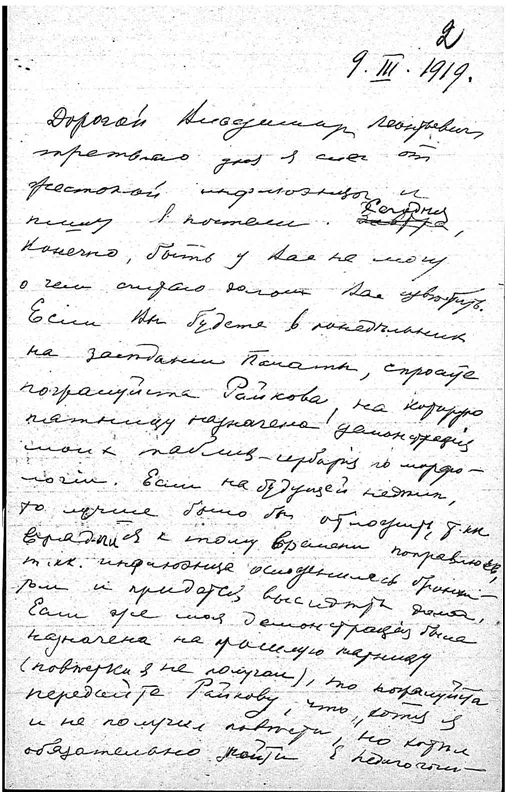 2
9. III. 1919.
Дорогой Владимир Леонтьевич
третьяго дня я слег от
жестокой инфлюэнцы и
пишу в постели. Сегодня,
конечно, быть у Вас не могу
о чем считаю долгом Вас известить.
Если Вы будете в понедѣльник
на засѣдании Палаты, спросите
пожалуйста Райкова, на которую
пятницу назначена демонстрация
моих таблиц-гербария по морфо-
логии. Если на будущей недѣлѣ,
то лучше было бы отложить, т.к.
едва ли я к тому времени поправлюсь,
т.к. инфлюэнца осложнилась бронхи-
том и придется высидѣть дома.
Если же моя демонстрация была
назначена на прошлую пятницу
(повѣстки я не получал), то пожалуйста
передайте Райкову, что "хотя я
и не получил повѣстки, но хотѣл
обязательно пойти в педагогиче-